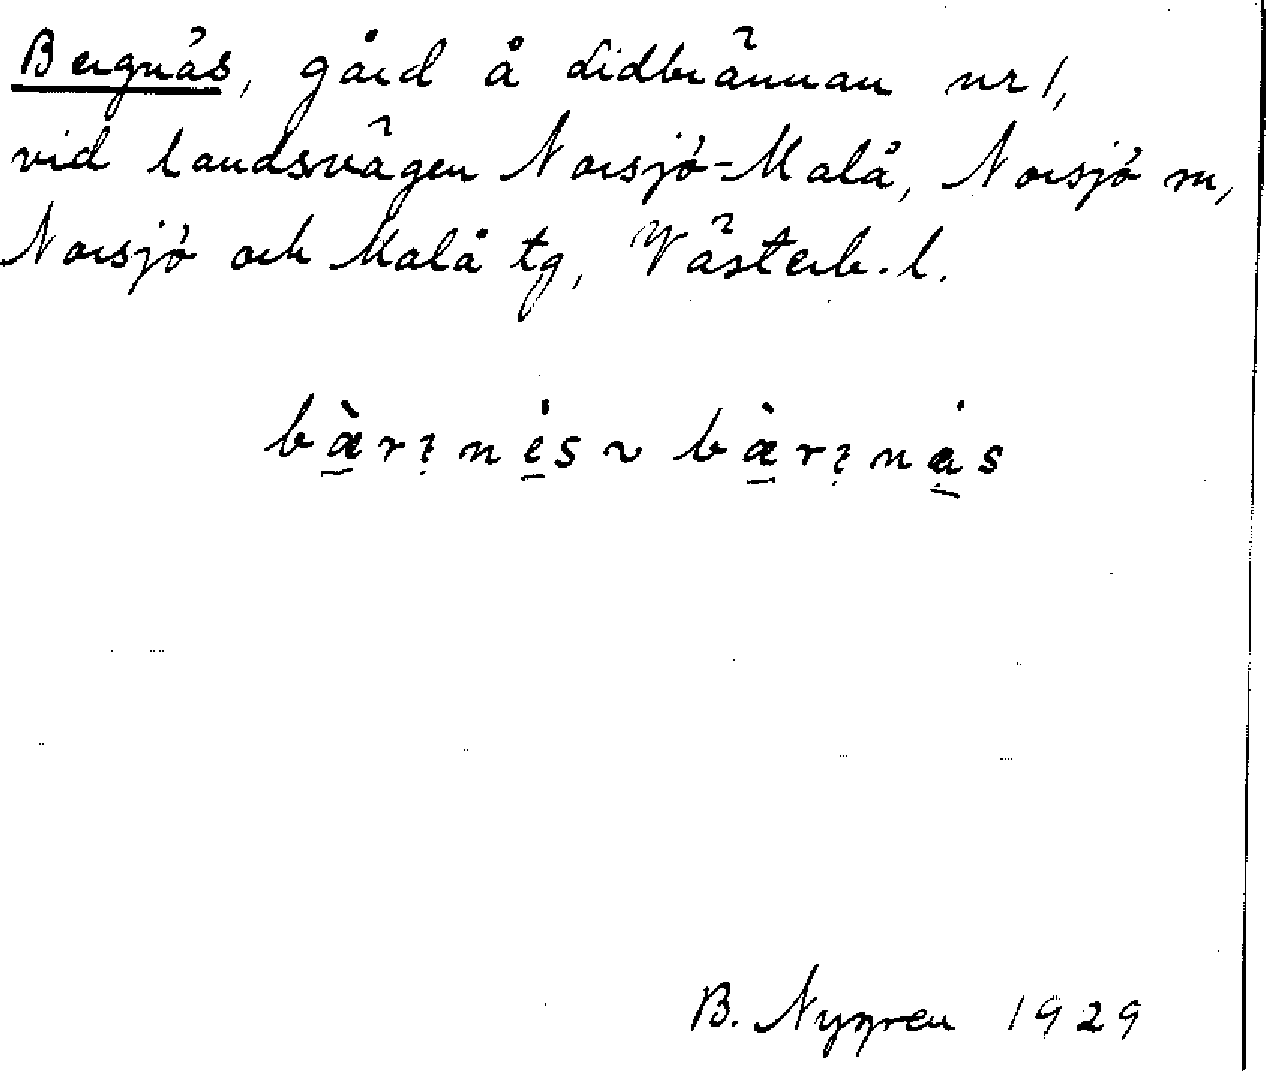 Bergnäs, gård å Lidbrännan nr 1,
vid landsvägen Norsjö-Malå, Norsjö sn,
Norsjö och Malå tg, Västerb. l.
B. Nygren 1929